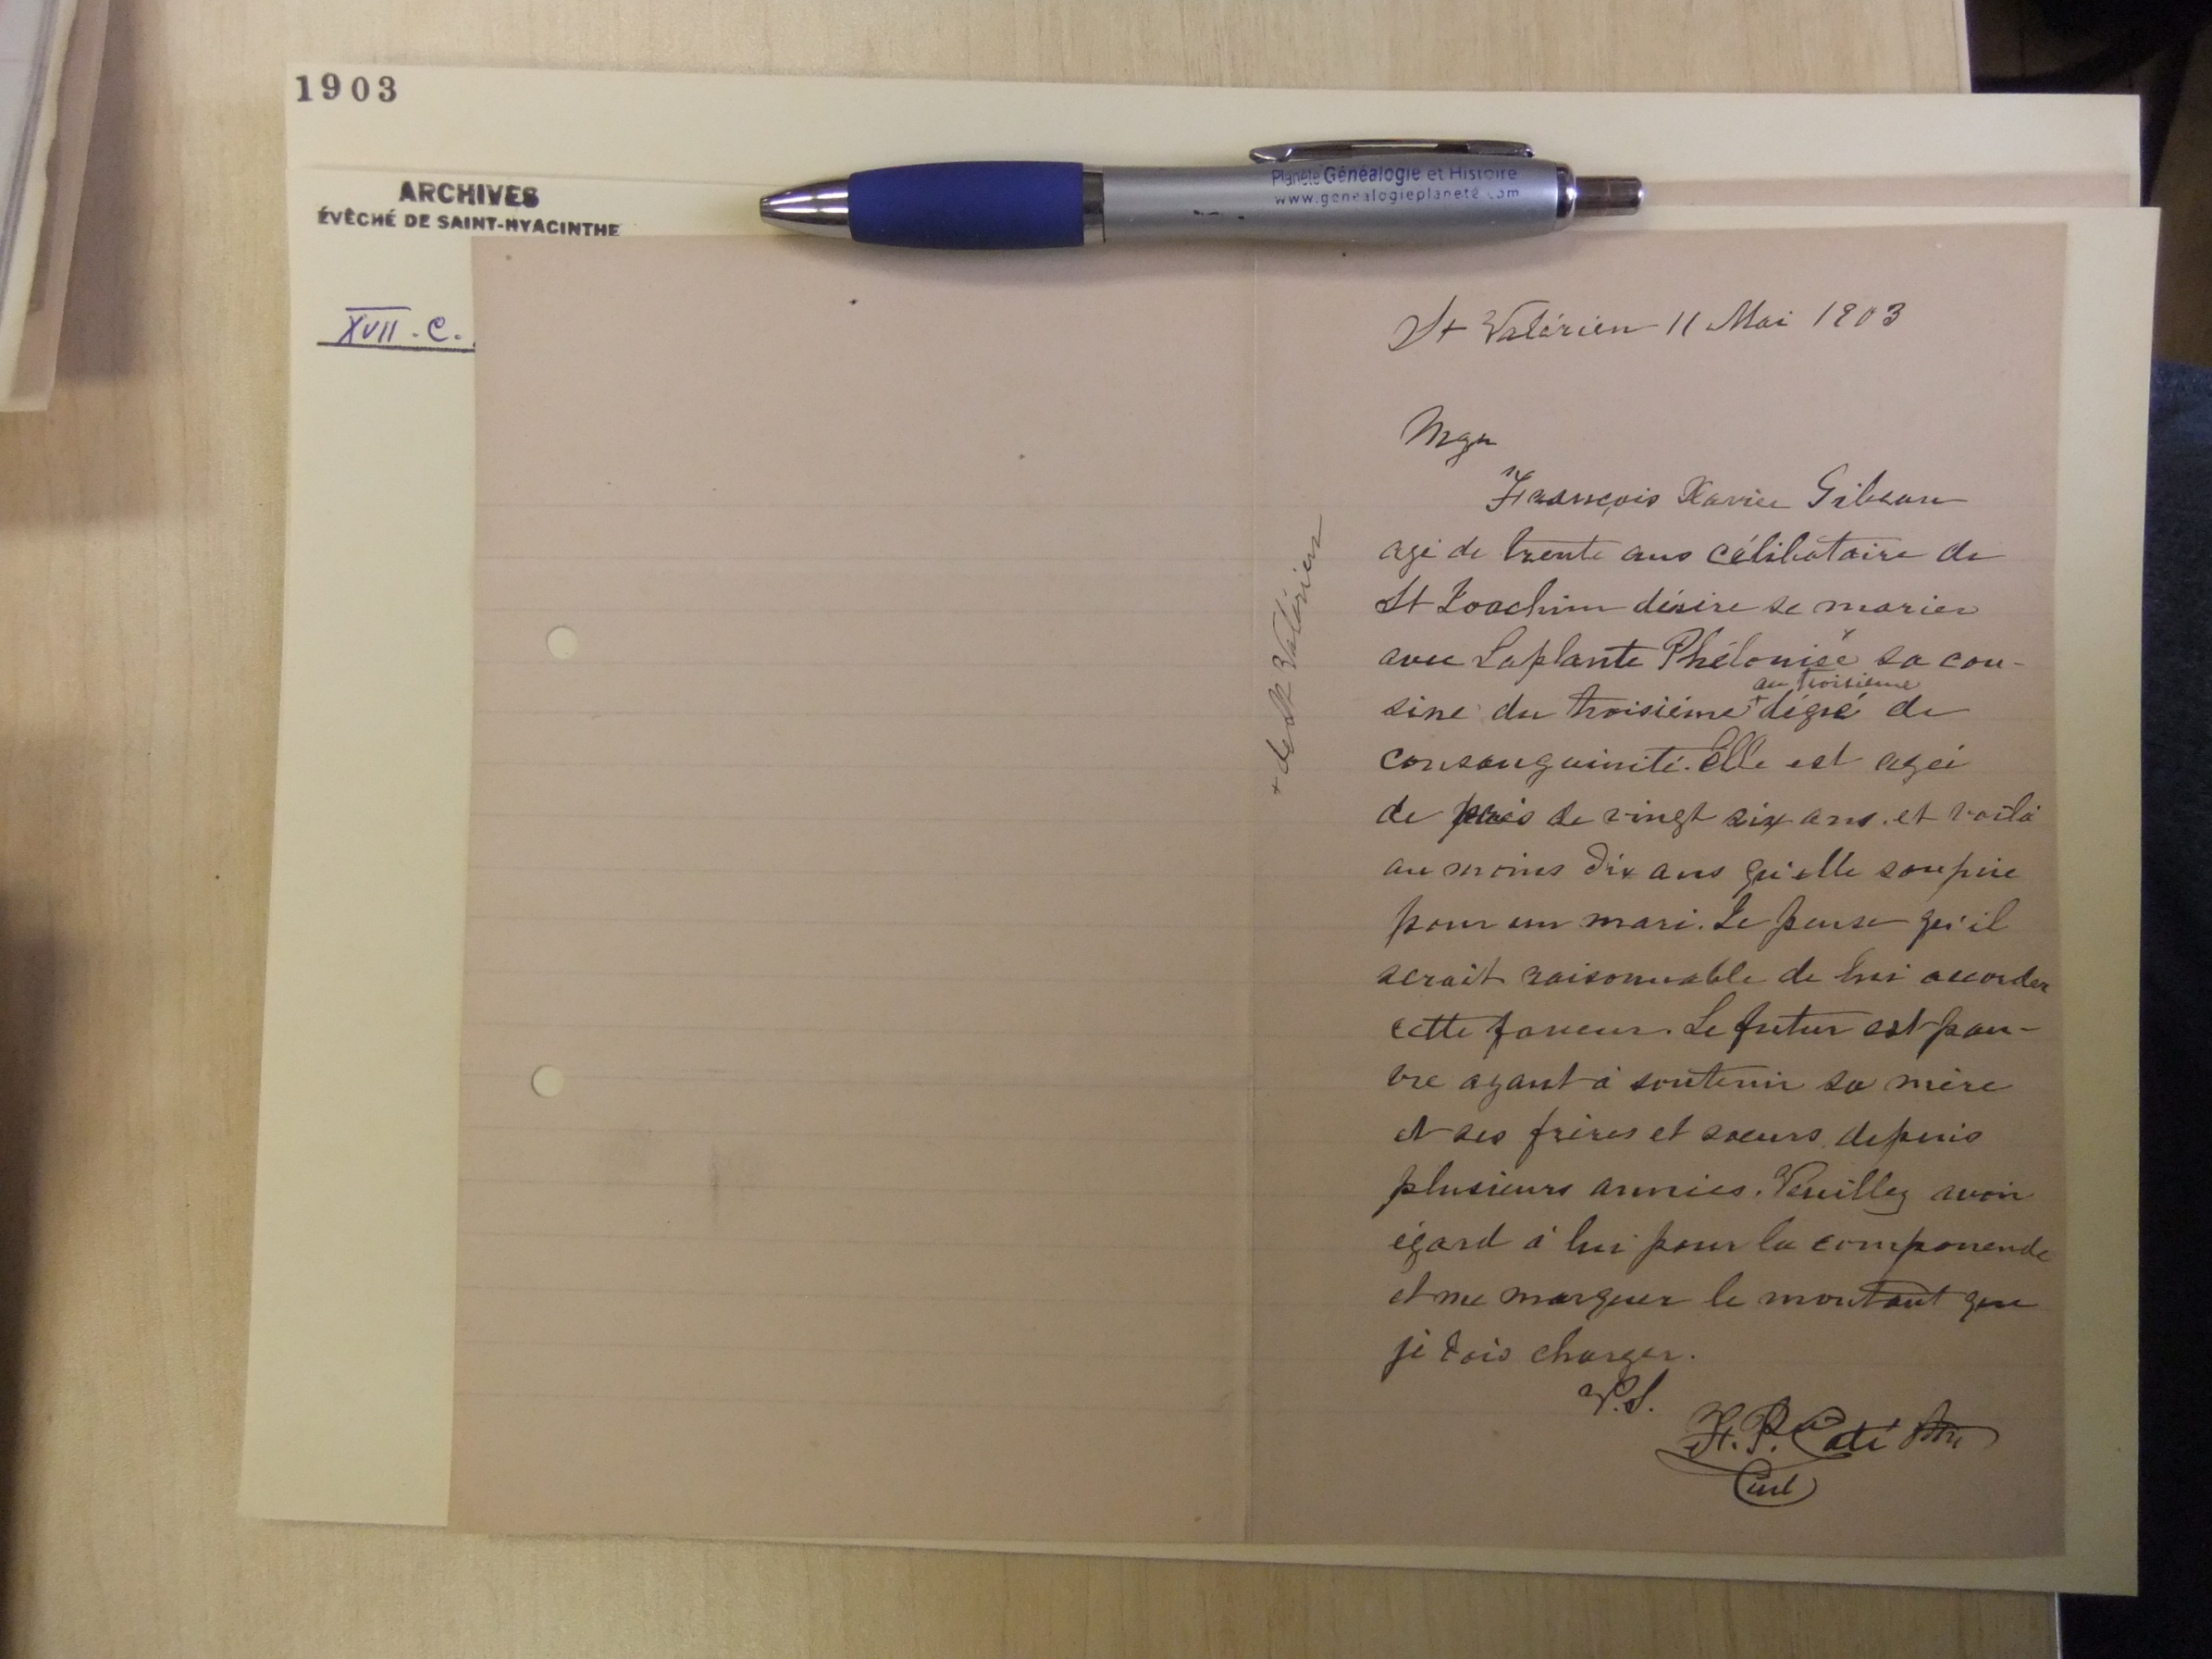 1903
ARCHIVES
ÉVÊCHÉ DE SAINT-HYACINTHE
XVII. C.
Planète Généalogie et Histoire
www.genealogieplanete.com
St Valérien 11 Mai 1903
Mgr
François Xavier Gibeau
agé de trente ans célibataire de
St Joachim désire se marier
avec Laplante Phélonise x sa cou-
sine du troisiéme + au troisieme dégré de
consanguinité. Elle est ageé
de près de vingt six ans. et voilà
au moins dix ans qu'elle soupire
pour un mari. Je pense qu'il
serait raisonnable de lui accorder
cette faveur. Le futur est pau-
vre ayant à soutenir sa mère
et ses frères et soeurs depuis
plusieurs années. Veuillez avoir
égard à lui pour la componende
et me marquer le montant que
je dois charger.
V.S.
Coté Ptre
Curé
+ de St Valérien